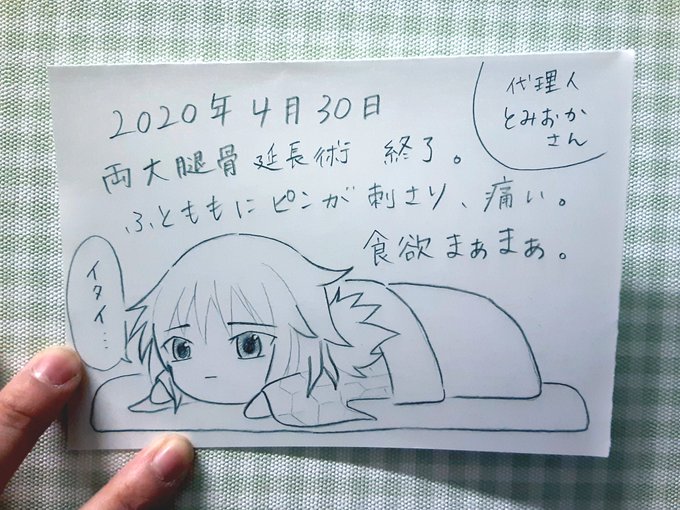 2020年4月30日
両大腿骨延長術 終了。
ふとももにピンが刺さり、痛い。
食欲まぁまぁ。
代理人
とみおか
さん
イタイ…